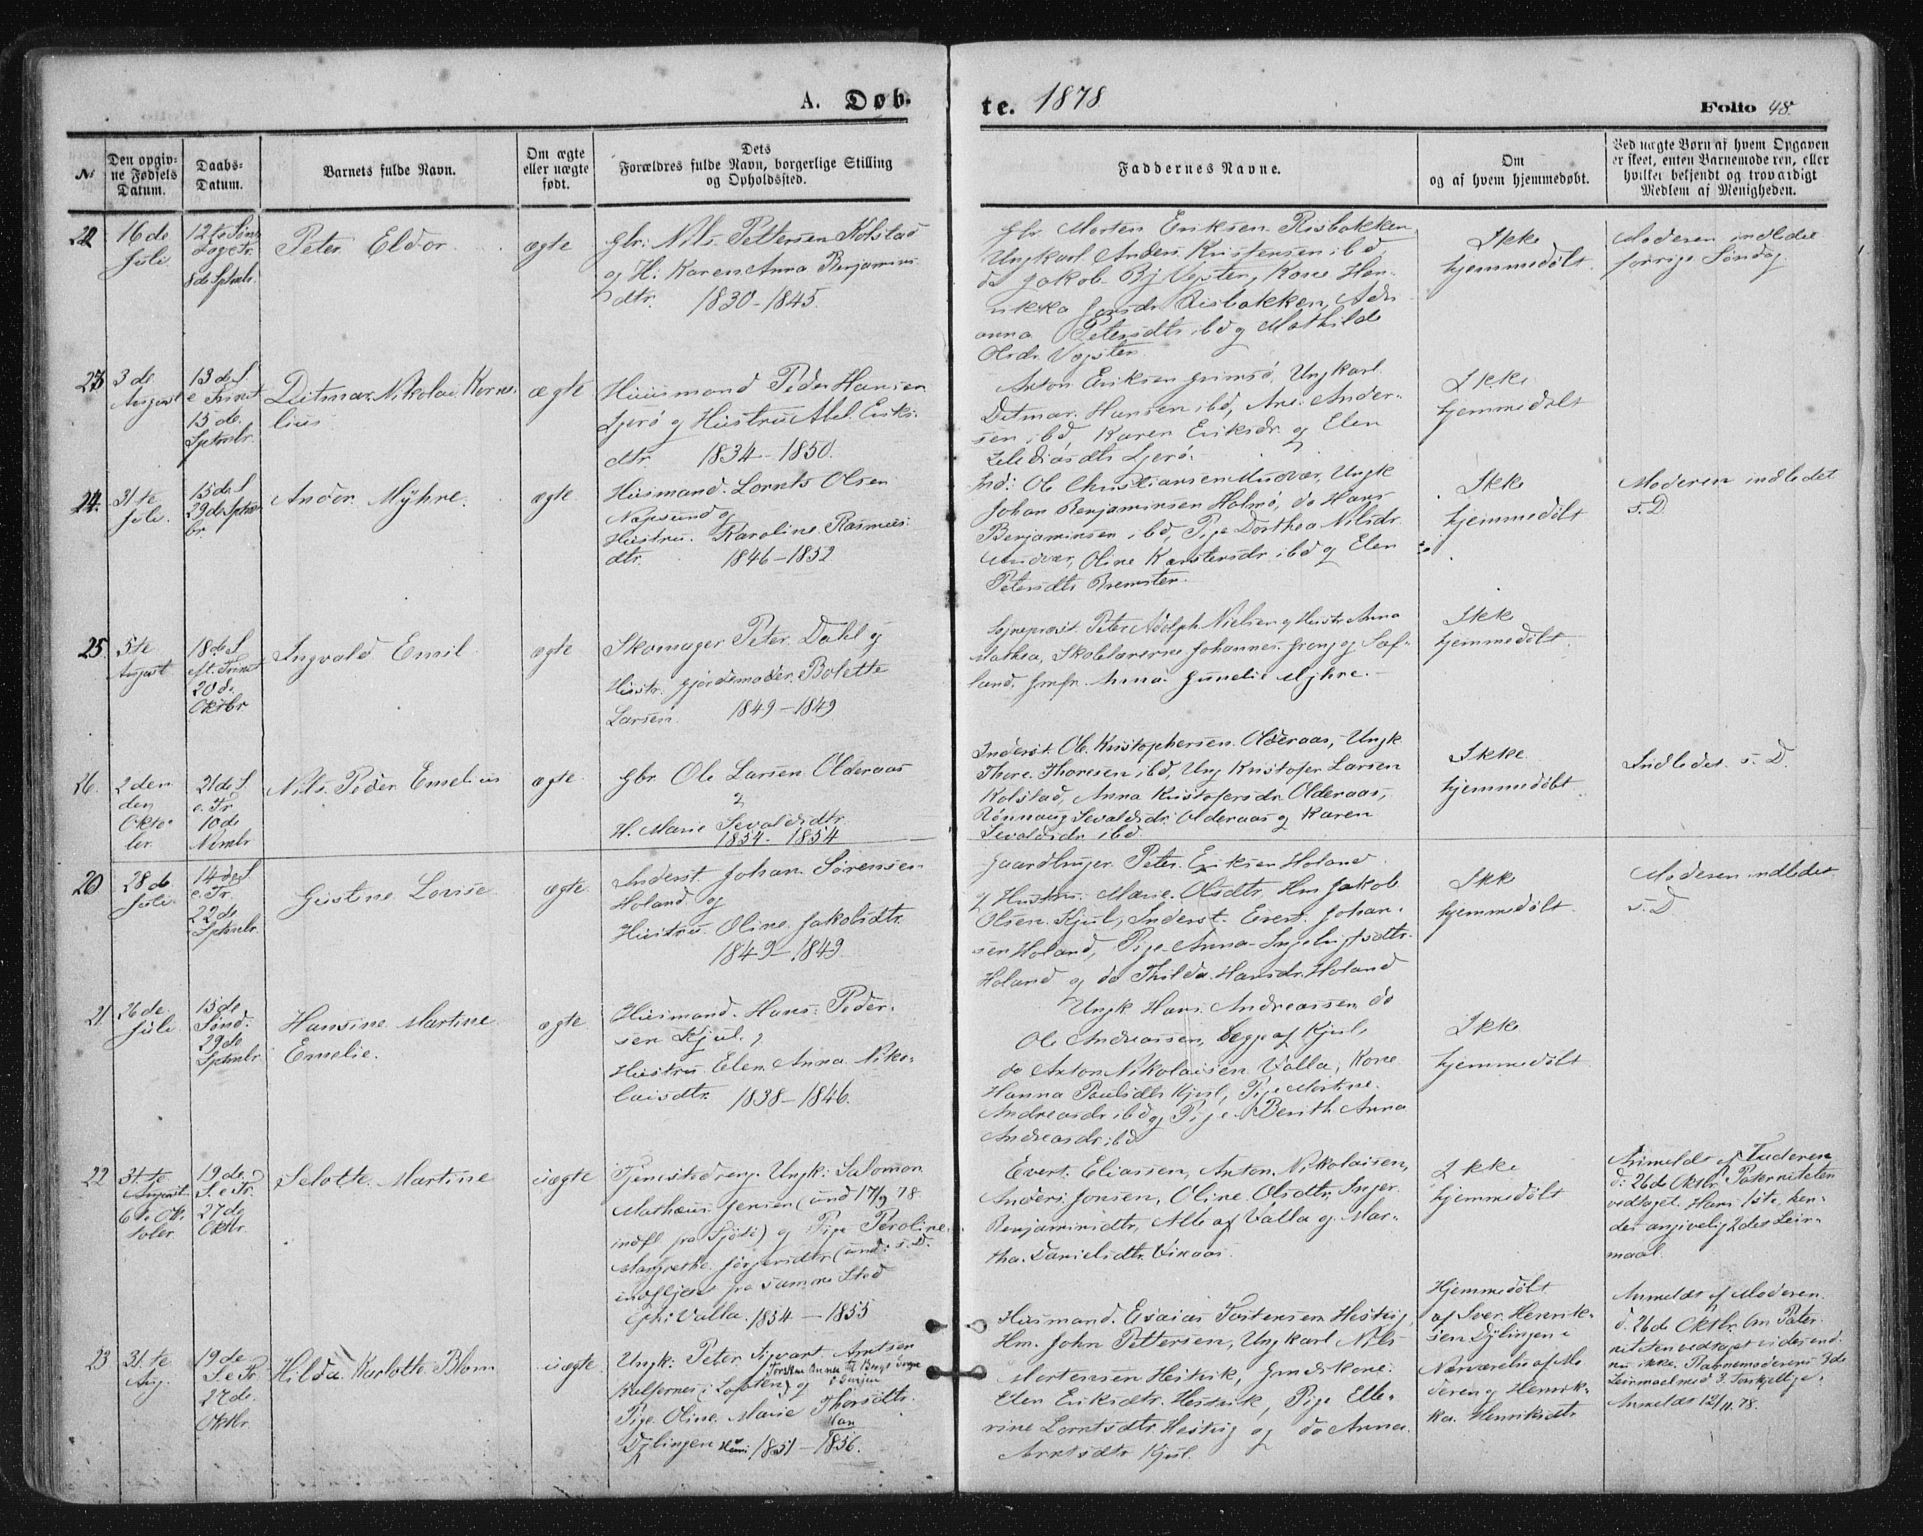 A. Døb-
te. 1878
Folio 48.
No
Den opgiv-
ne Fødsels
Datum.
Daabs-
Datum.
Barnets fulde Navn.
Om ægte
eller uægte
født.
Dets
Forældres fulde Navn, borgerlige Stilling
og Opholdssted.
Faddernes Navne.
Om
og af hvem hjemmedøbt.
Ved uægte Børn af hvem Opgaven
er skeet, enten Barnemoderen, eller
hvilket bekjendt og troværdigt
Medlem af Menigheden.
22
16de
Juli
8de Sptmbr.
Peter Eldor
ægte
Gbr: Nils Pettersen Kolstad
og H. Karen Anna Benjamins
dtr. 1830-1845.
Gbr Morten Eriksen Risbakken
Ungkarl Anders Kristensen ibd
do Jakob Bj Vegsten, Kone Hen-
rikka Jensdr Risbakken,
anna Petersdtr ibd og Mathilde
Olsdr. Vegsten
Ikke
hjemmedøbt
Moderen indledet
forrige Søndag
23
3de
August
13de S
e Trinit
15de
Sptmbr.
Ditmar Nikolai Korne-
lius
ægte
Huusmand Peder Hansen
og Hustru Abel Eriks-
dtr. 1834-1850.
Anton Eriksen Grimsø, Ungkarl
Ditmar Hansen ibd, Ane Ander-
sen ibd Karen Eriksdr og Elen
Ikke
hjemmedøbt
24.
31te
Juli.
15de S
29de Sptm-
br.
Andor Myhre.
ægte
Husmand Lornts Olsen
Næpsund og
Hustru Karoline Rasmus
dtr. 1846-1852
Ole Christiansen Mudvær, Ungk
Johan Benjaminsen Holmø, do Hans
Benjaminsen ibd, Pige Dorthea Nilsdr
Oline Karstensdr ibd og Elen
Petersdtr Bremsten.
Ikke
hjemmedøbt
Moderen indledet
s. D
25.
5te
August
18de S
20de
Oktbr
Ingvald Emil
ægte
Skomager Peter Dahl og
Hustr. Gjordemoder Bolette
Larsen. 1849-1849
Sogneprest Peter Adolph Nielsen og Hustr Anna
Mathea, Skolelærerne Johannes Grong og Saf-
land, Jmfr Anna Gunelie Myhre.
Ikke
hjemmedøbt
26.
2den
den
Okto-
ber.
21de S
e. Tr
10de
Nvmbr
Nils Peder Emelius
ægte
Gbr Ole Larsen Olderaas
og
H. Marie Sevaldsdtr
1854. 1854
Inderst. Ole Kristophersen Olderaas, Ungk
Thore Thoresen ibd, Ung Kristofer Larsen
Kolstad, Anna Kristofersdr Olderaas,
Rønnaug Sevaldsdr Olderaas og Karen
Sevaldsdr ibd
Ikke
hjemmedøbt
Indledet s. D.
20
28de
Juli
14de S
e. Tr.
22de
Sptmbr.
Gistine Lovise
ægte
Inderst Johan Sørensen
Holand og
Hustru Oline Jakobsdtr.
1849-1849
Gaardbruger Peter Eriksen Holand
og Hustru Marie Olsdtr, Hm Jakob
Olsen Kjul, Inderst Evert Johan-
sen Holand, Pige Anna Ingebrigtsdtr
Holand og do Thilda Hansdr. Holand
Ikke
hjemmedøbt
Moderen indledet
s. D
21
26de
Juli
15de
Sønd.
29de
Sptmbr
Hansine Martine
Emelie.
ægte
Husmand Hans Peder-
sen Kjul og
Hustru Elen Anna Niko-
laisdtr. 1838-1846.
Ungk Hans Andreassen do
Ole Andreassen, begge af Kjul,
do Anton Nikolaisen Valla, Kone
Hanna Paulsdtr Kjul, Pige Martine
Andreasdr ibd og Pige Berith Anna
Andreasdr ibd
Ikke
hjemmedøbt
22
31te
August
6te Ok-
tober
19de
S. e Tr.
27de
Oktbr.
Selotte Martine
uægte
Tjenestedreng Ungk: Salomon
Mathæus Jensen (und 17/9 78
indfl fra ) og Pige Peroline
Margrethe Jørgensdtr (und: s. D.
indflyttet fra samme Sted
Oph: Valla. 1854-1855
Evert Eliassen, Anton Nikolaisen,
Anders Jonsen, Oline Olsdtr, Inger
Benjaminsdtr, Alle af Valla og Mar-
tha Danielsdtr
Ikke
hjemmedøbt
Anmeldt af Faderen
d: 26de Oktbr. Paterniteten
vedtaget. Hans 1ste, hen-
des angivelig 2det Leir-
maal.
23
31te
Aug.
19de
S. e Tr
27de
Oktbr
Hilda Karlotte Blom
uægte
Ungk: Peter Sivart Arntsen
og
Pige Oline Marie Thorsdtr.
Dylingen Hun 1851-1856.
Han
Husmand Esaias Torstensen
Hm. John Pettersen, Ungkarl Nils
Mortensen Hestvik,
Elen Eriksdtr Hestvik, Pige Elle-
rine Lorntsdtr og do Anna
Arntsdtr Kjul.
Hjemmedøbt
af Iver Henrik-
sen Dylingen i
Nærværelse af Mo
deren og Henrik-
ka Henriksdtr
Anmeldt af Moderen
d. 26de Oktbr. Om Pater-
niteten vedtaget vides end-
nu ikke. Barnemoderens 3de
Leirmaal med 3 forskjellige.
Anmeldt 12/11 78.